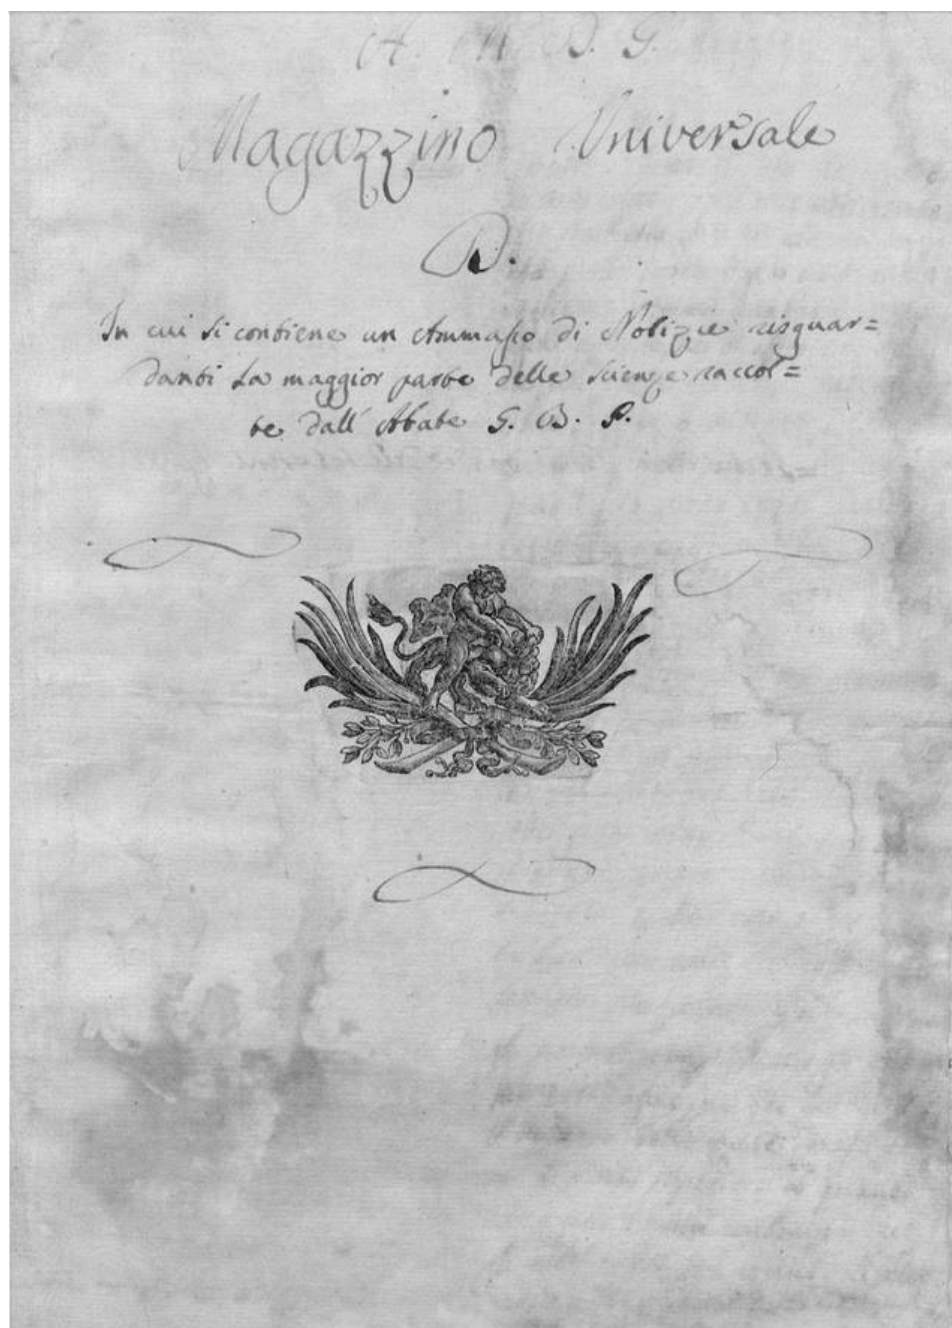 A. M. D. G.
Magazzino Universale
D.
In cui si contiene un Ammasso di Notizie risguar=
danti La maggior parte delle scienze raccol=
te dall' Abate G. B. P.